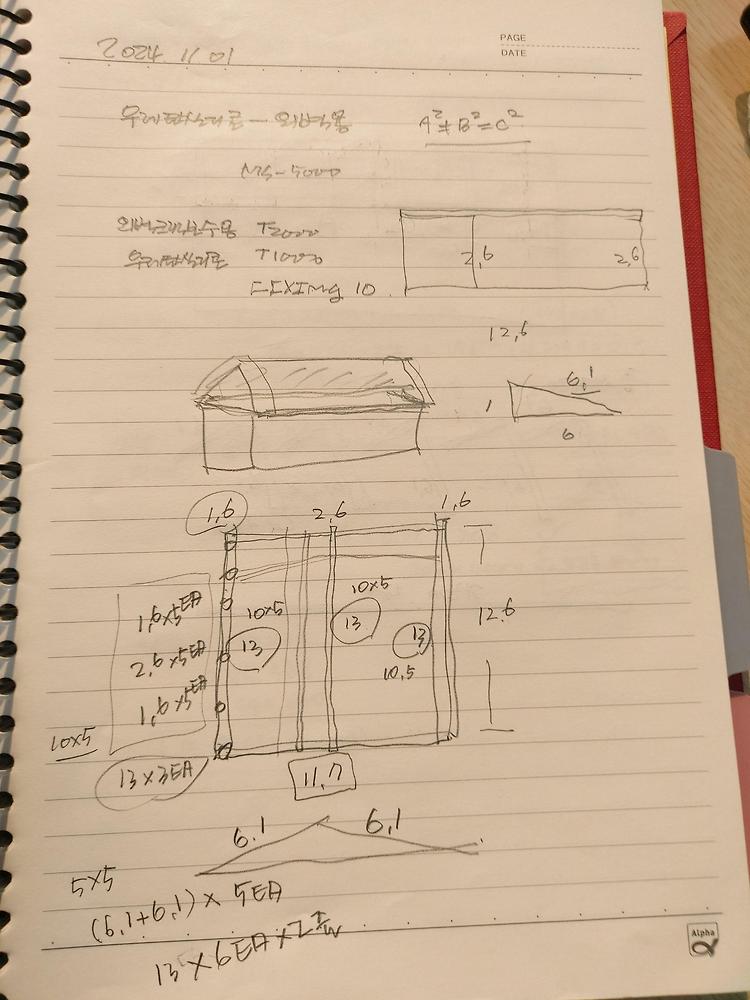 PAGE
DATE
2024 11 01
우레탄실리콘 - 외벽용
A²+B²=C²
MS-5000
외벽크랙보수용 T2000
우레탄실리콘 T1000
10
2,6
2,6
12,6
6,1
1
6
1,6
2,6
1,6
1,6×5EA
2,6×5EA
1,6×5EA
10×5
13
10×5
13
13
10,5
12,6
10×5
13×3EA
11,7
6.1
6,1
5×5
(6,1+6,1)×5EA
13×6EA×2
Alpha